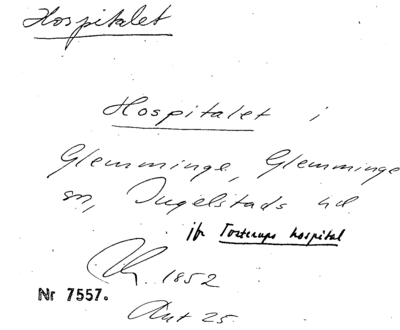 Hospitalet
Hospitalet i
Glemminge, Glemminge
sn, Ingelstads hd
jfr Tosterups hospital
1852
Nr 7557.
25